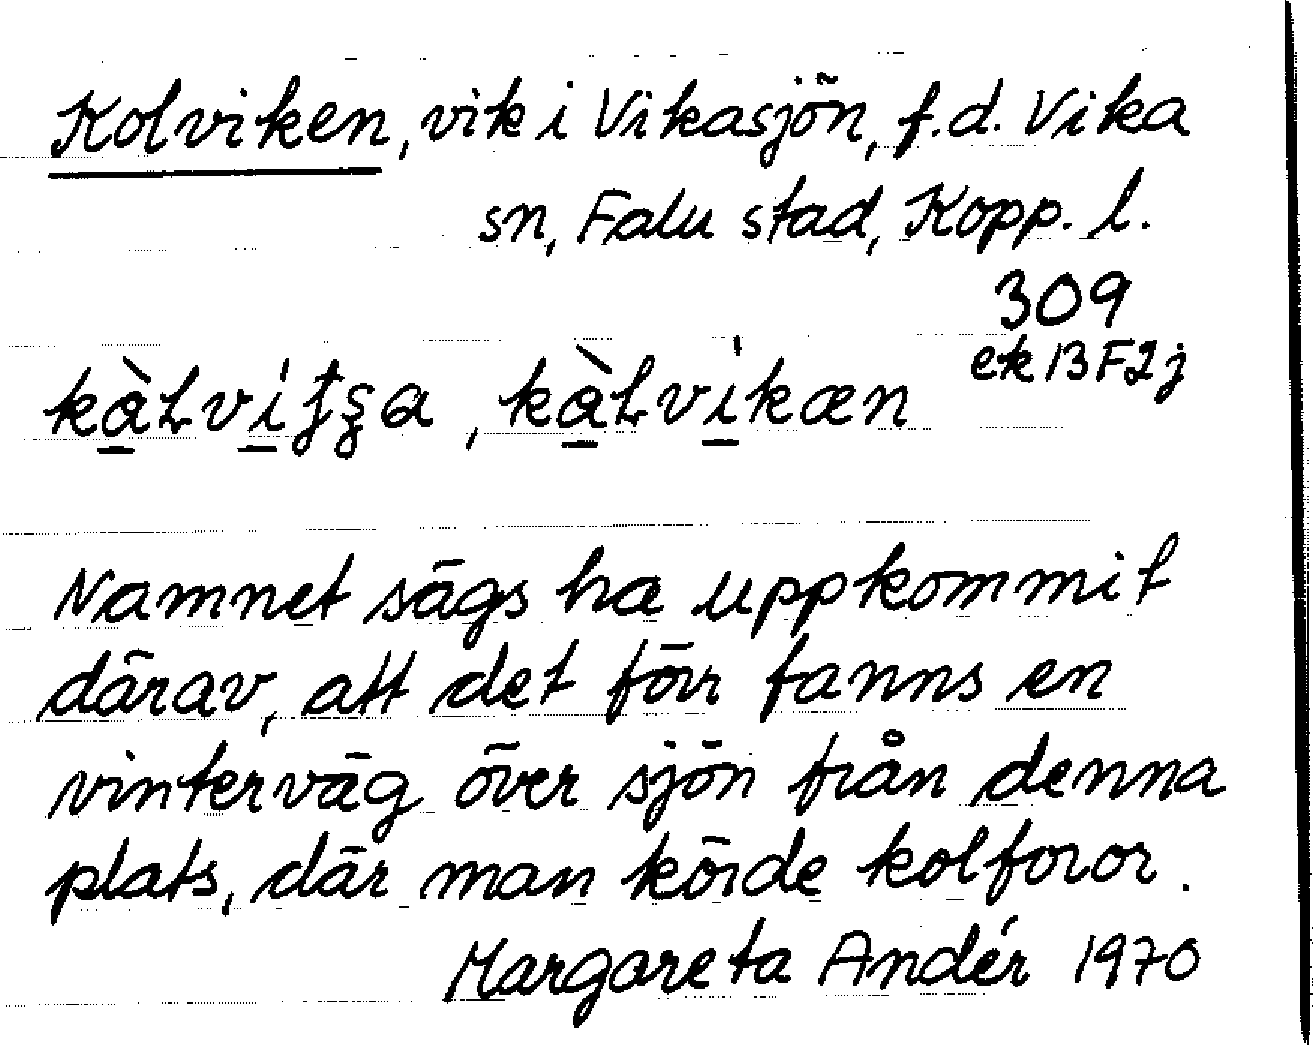 Kolviken, vik i Vikasjön, f.d. Vika
sn, Falu stad, Kopp. l.
309
ek 13F2j
kàLvi̍kæn
Namnet sägs ha uppkommit
därav, att det förr fanns en
vinterväg över sjön från denna
plats, där man körde kolforor.
Margareta Andér 1970